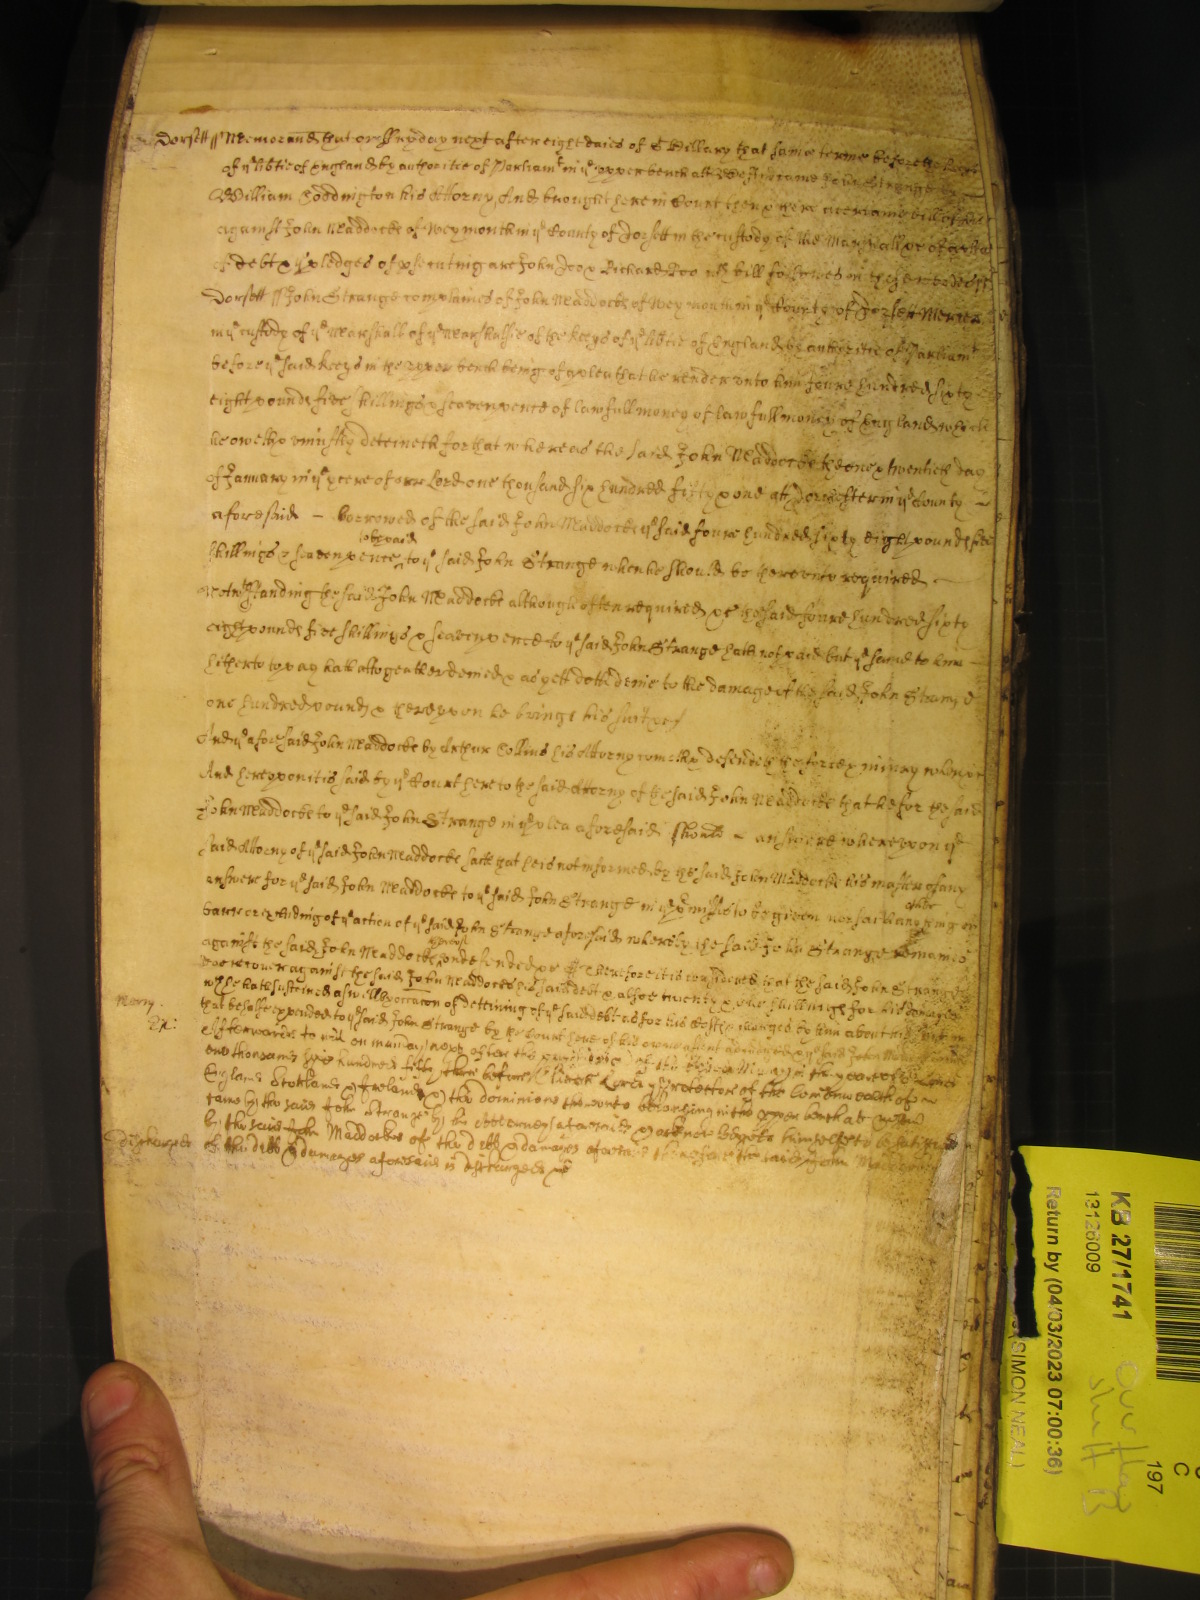 Dorsett ss Memorand that on Fryday next after eight daies of S Hillary that same terme before the Keeps
of ye libtie of England by authoritie of Parliamt in ye upper bench att Westm came John Strange by
William Coddington his Attorny And brought here in Court then & there a certaine bill
against John Maddocke of Weymouth in ye County of Dorsett in the custody of the Marshall &c of a plea
of debt & ye pledges of prsecuting are John Doo & Richard Roo wch bill followes in these words ss
Dorsett ss John Strange complaines of John Maddocke of Weymouth in ye County of Dorsett Mercer
in ye custody of ye Marshall of ye Marshalsie of the keeps of ye libtie of England by authoritie of Parliamt
before ye said keeps in the upper bench being of a plea that he render unto him foure hundred sixty
eight pounds five shillings & seaven pence of lawfull money of lawfull money of England which
he oweth & uniustly deteineth for that whereas the said John Maddocke the one & twentieth day
of January in ye yeere of our Lord one thousand six hundred fifty & one att Dorchester in ye County
aforesaid - borrowed of the said John Maddocke ye said foure hundred sixty eight pounds five
shillings & seaven pence to be paid to ye said John Strange when he should be thereunto required
Notwthstanding the said John Maddocke although often required &c the said foure hundred sixty
eight pounds five shillings & seaven pence to ye said John Strange hath not paid but ye same to him
hitherto to pay hath altogeather denied & as yett doth denie to the damage of the said John Strange
one hundred pounds & thereupon he brings his suite &c
And ye aforesaid John Maddocke by Arthur Collins his Attorny cometh & defendeth the force & iniury when &c
And hereupon it is said by ye Court here to the said Attorny of the said John Maddocke that he for the said
John Maddocke to ye said John Strange in ye plea aforesaid should - answere whereupon ye
said Attorny of ye said John Maddocke saith that he is not informed by the said John Maddocke his master of any
answere for ye said John Maddocke to ye said John Strange in ye prmisses to be given nor saith any other thing in
barr or excluding of ye action of ye said John Strange aforesaid whereby the said John Strange remaines
against the said John Maddocke thereof undefended &c Therefore it is considered that the said John Strange
doe recover against the said John Maddocke his said debt & alsoe twenty & one shillings for his damages
wch he hath susteined aswell by occacon of deteining of ye said debt as for his Costs & charges by him about his suit in
that behalfe expended to ye said John Strange by the Court here of his owne assent adiudged & ye said John Maddocke
Mercy.
&c:
Afterwards to witt on munday next after the of in the yeare of Lord
one thousand six hundred fifty three before Lord protector of the Comonwealth of
England Scotland & Ireland & the dominions thereunto belonging in the upper bench at Westmr
came the said John Strange by his Atturney aforesaid & acknowledgeth himselfe to be satisfied
by the said John Maddocke of the debt & damages aforesaid therefore the said John Maddocke
Discharged
of the debt & damages aforesaid is discharged &c
KB 27/1741
13126009
Return by (04/03/2023 07:00:36)
(SIMON NEAL)
197
C